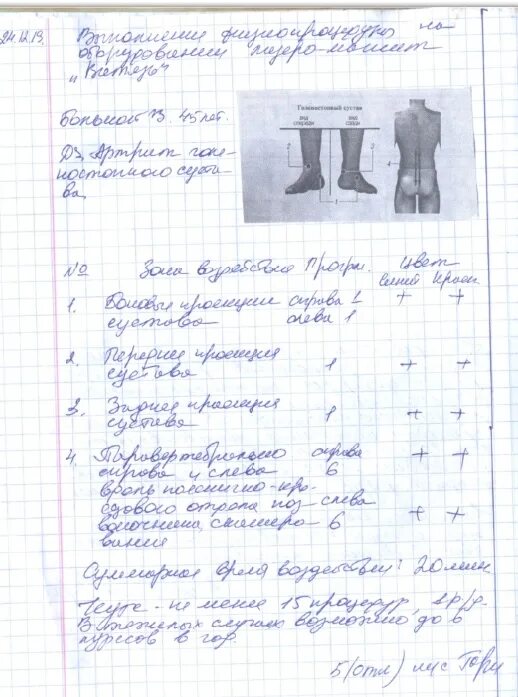 24.12.19.
Выполнение физиопроцедуры на
оборудовании лазеро-магнит
„Витязь"
Больной З. 45 лет.
Голеностопный сустав
вид спереди
вид сзади
2
3
1
Дз. Артрит голе-
ностопного суста-
ва,
№ Зона воздействия Програм. Цвет
синий красн
1. Боковые проекции справа 1 + +
сустава слева 1
2. Передняя проекция
сустава 1 + +
3. Задняя проекция
сустава 1 + +
4. Паравертебрально справа + +
справа и слева 6
вдоль пояснично-кре-
сцового отдела поз- слева
воночника, сканиро- 6 + +
вание
Суммарное время воздействия: 20 мин
Курс - не менее 15 процедур, 1 р/д.
В тяжелых случаях возможно до 6
курсов в год.
5 (отл)